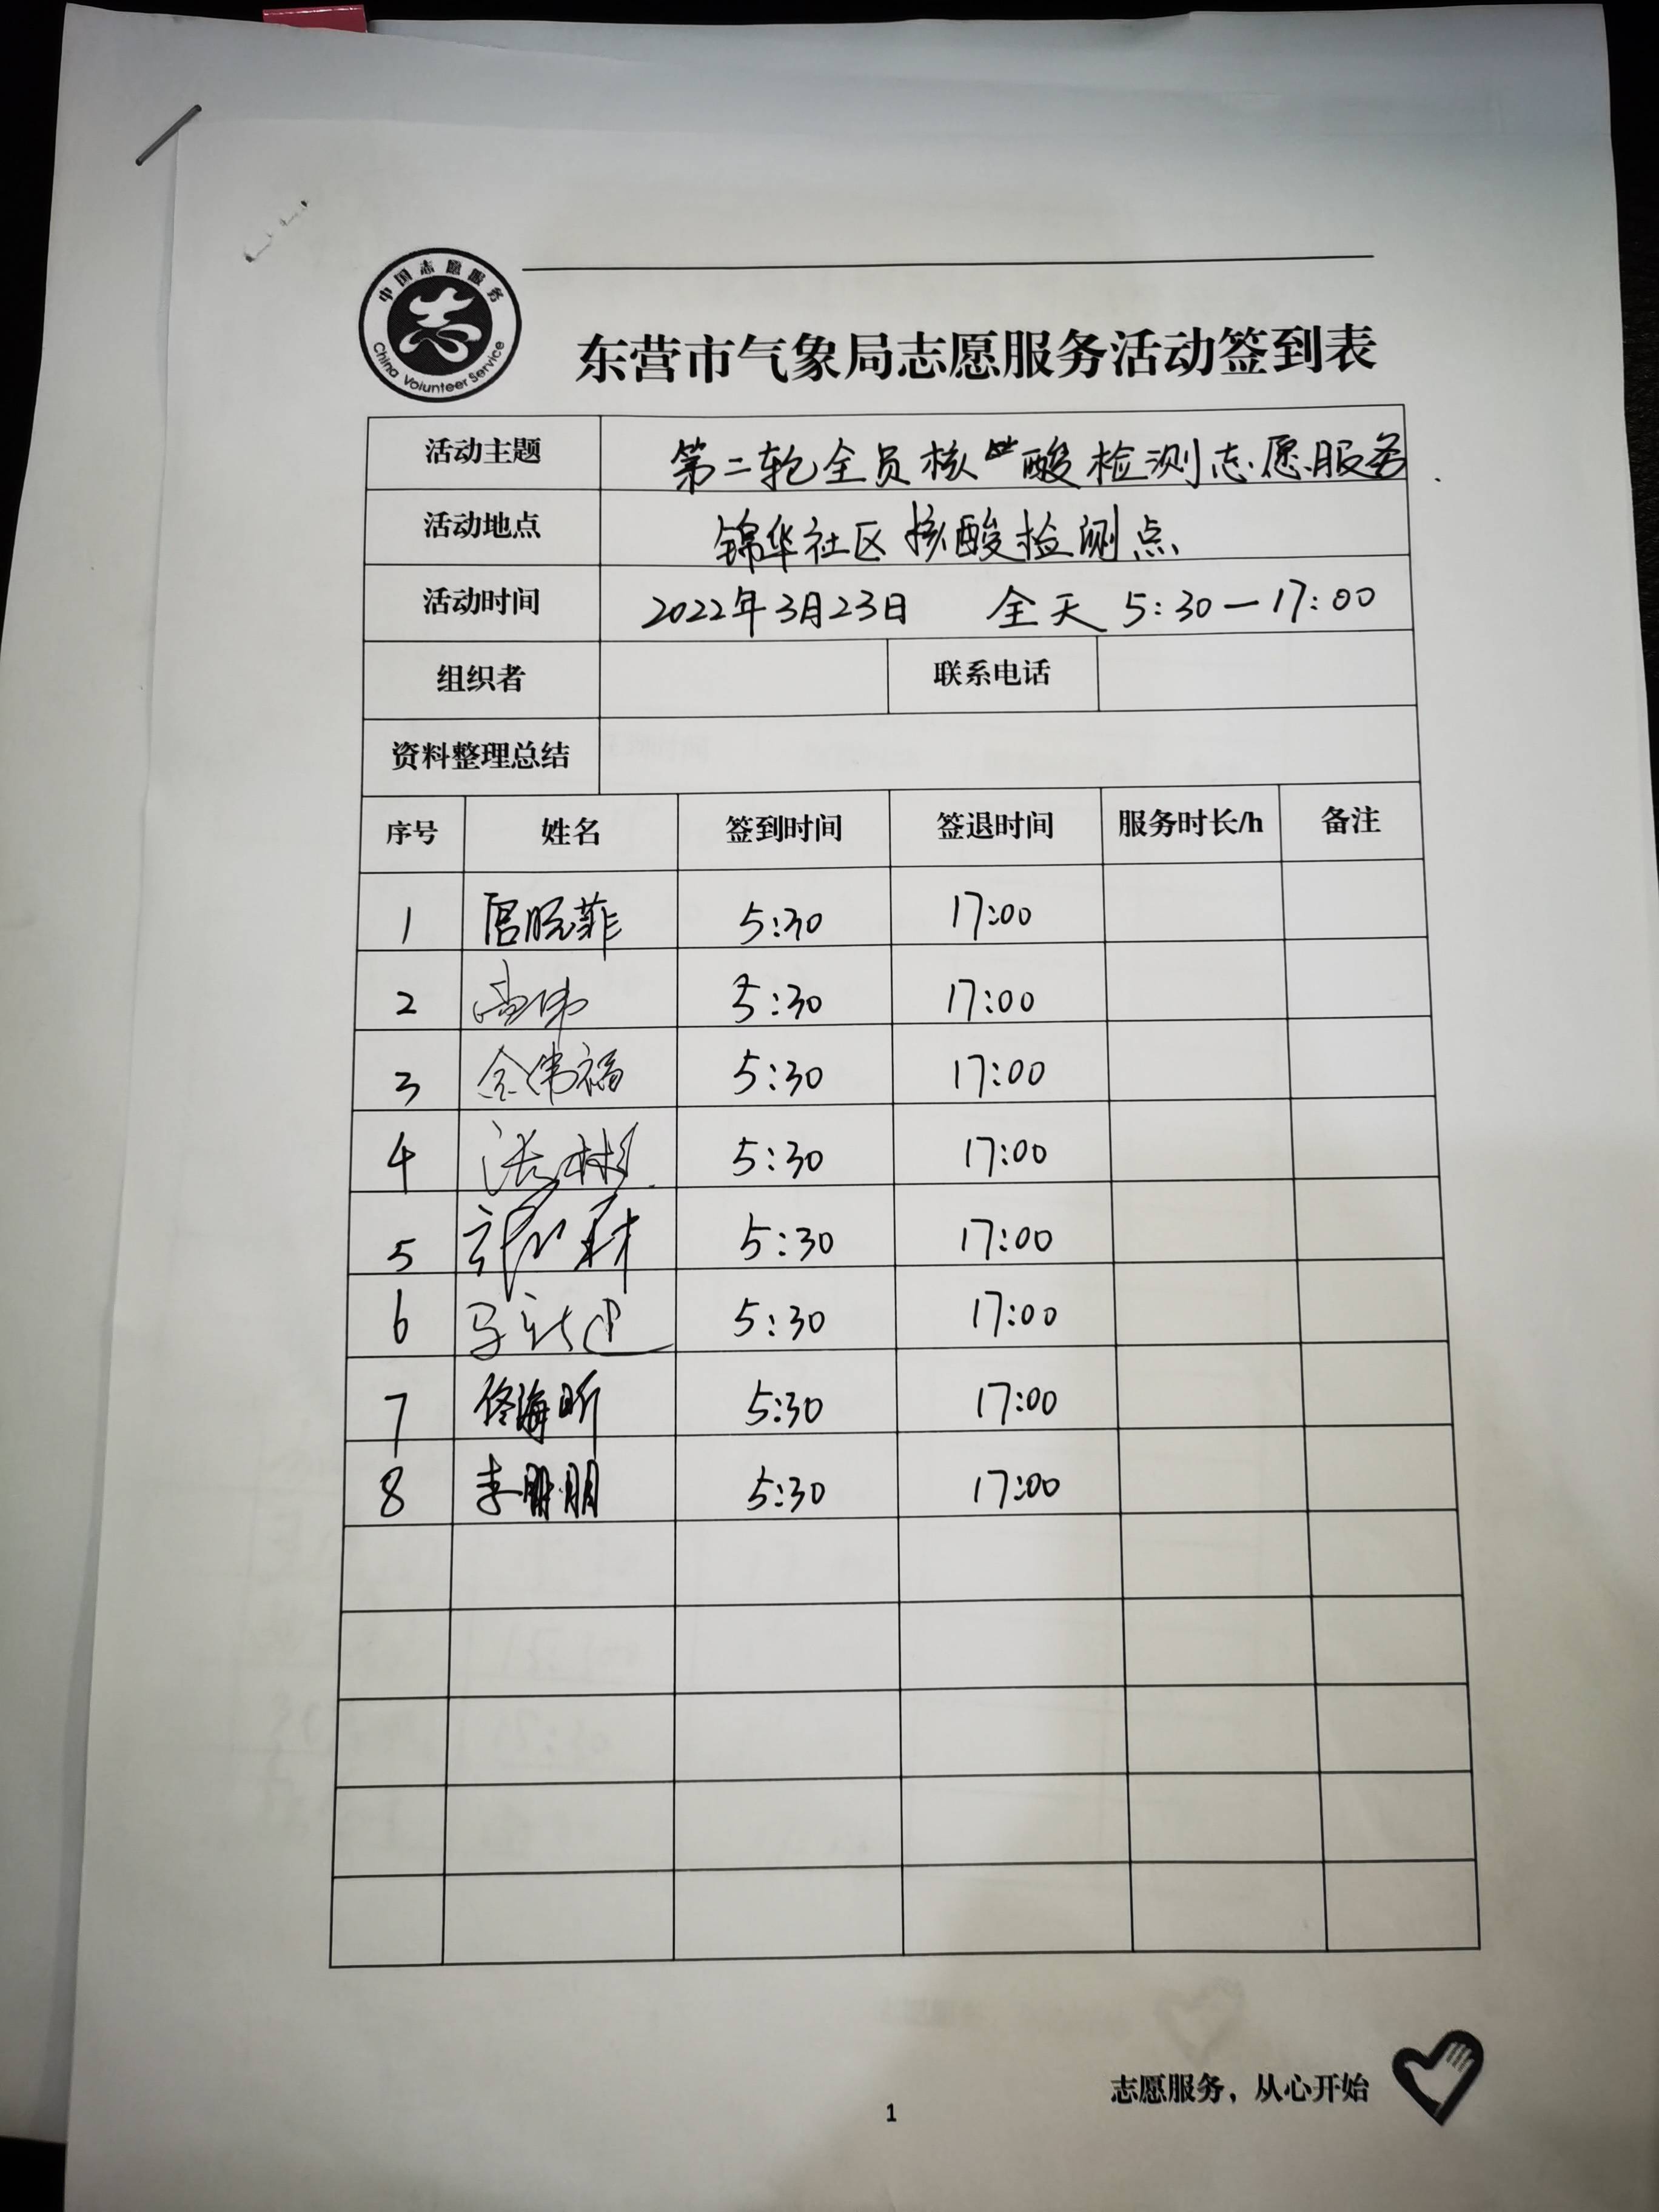 中国志愿服务
China Volunteer Service
东营市气象局志愿服务活动签到表
活动主题 第二轮全员核酸检测志愿服务
活动地点 锦华社区核酸检测点
活动时间 2022年3月23日 全天 5:30—17:00
组织者 联系电话
资料整理总结
序号 姓名 签到时间 签退时间 服务时长/h 备注
1 5:30 17:00
2 5:30 17:00
3 5:30 17:00
4 张彬 5:30 17:00
5 5:30 17:00
6 5:30 17:00
7 佟海昕 5:30 17:00
8 李朋朋 5:30 17:00
志愿服务，从心开始
1